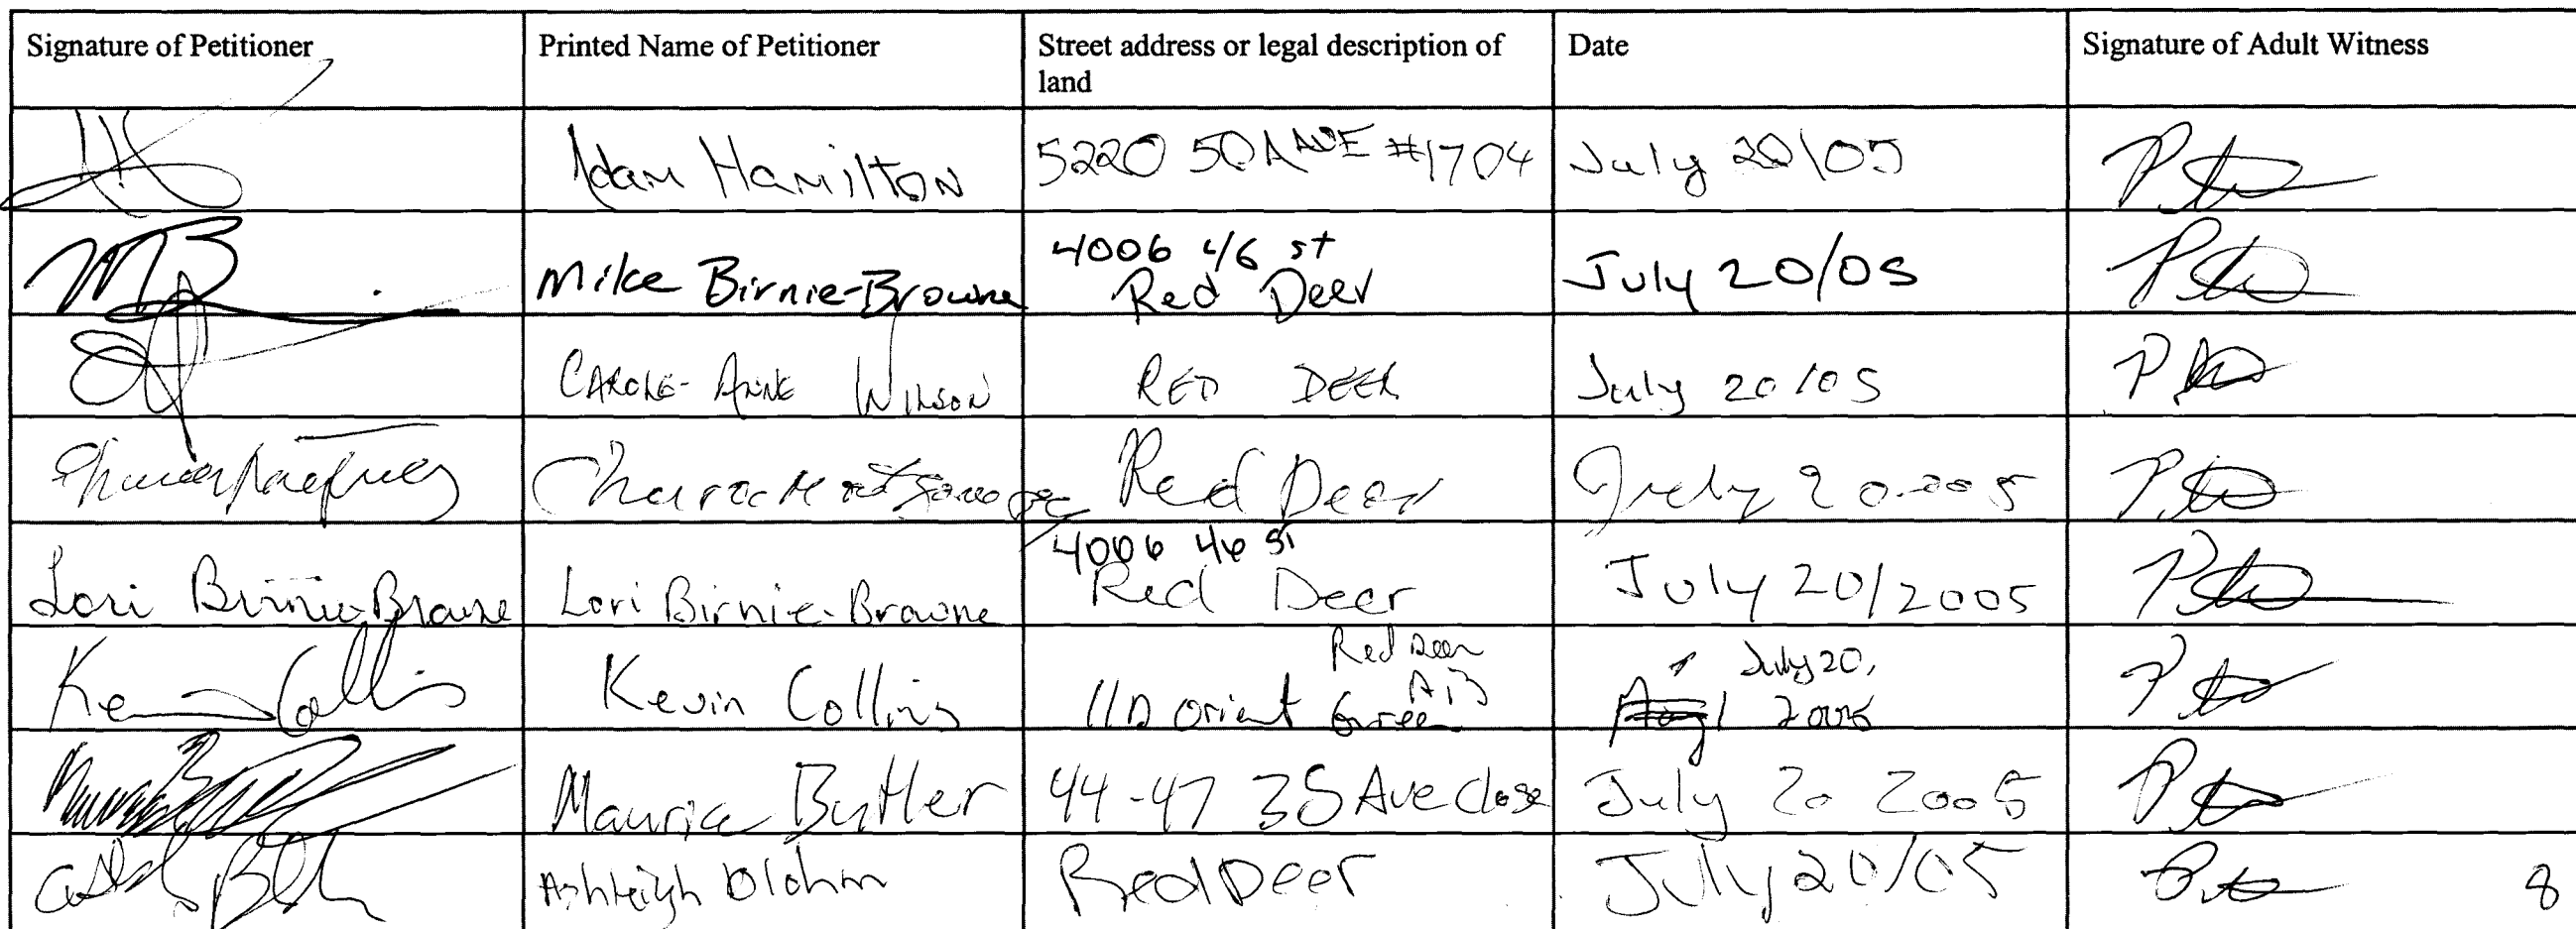 Signature of Petitioner
Printed Name of Petitioner
Street address or legal description of
land
Date
Signature of Adult Witness
Adam Hamilton
5220 50A AVE #1704
July 20/05
Mike Birnie-Browne
4006 46 st
Red Deer
July 20/05
CAROLE-ANNE WILSON
RED DEER
July 20/05
Red Deer
July 20 2005
Lori Birnie-Browne
Lori Birnie-Browne
4006 46 St
Red Deer
July 20/2005
Kevin Collins
Kevin Collins
Red Deer
AB
11D Orient Green
July 20,
2005
Maurice Butler
44-47 35 Ave Close
July 20 2005
Ashleigh Blohm
Red Deer
July 20/05
8